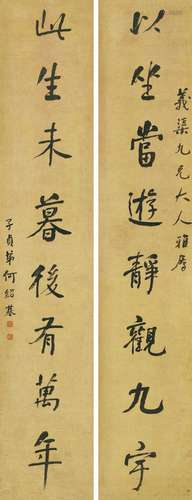 義渠九兄大人雅屬
以坐當遊靜觀九宇
此生未暮後有萬年
子貞弟何紹基